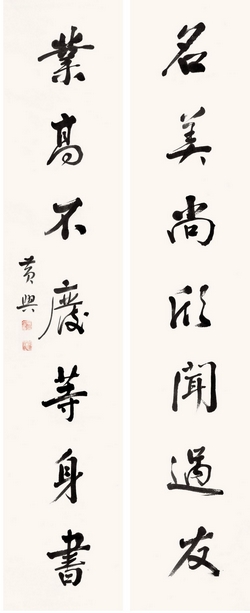 名美尚欣聞過友
業高不廢等身書
黄興